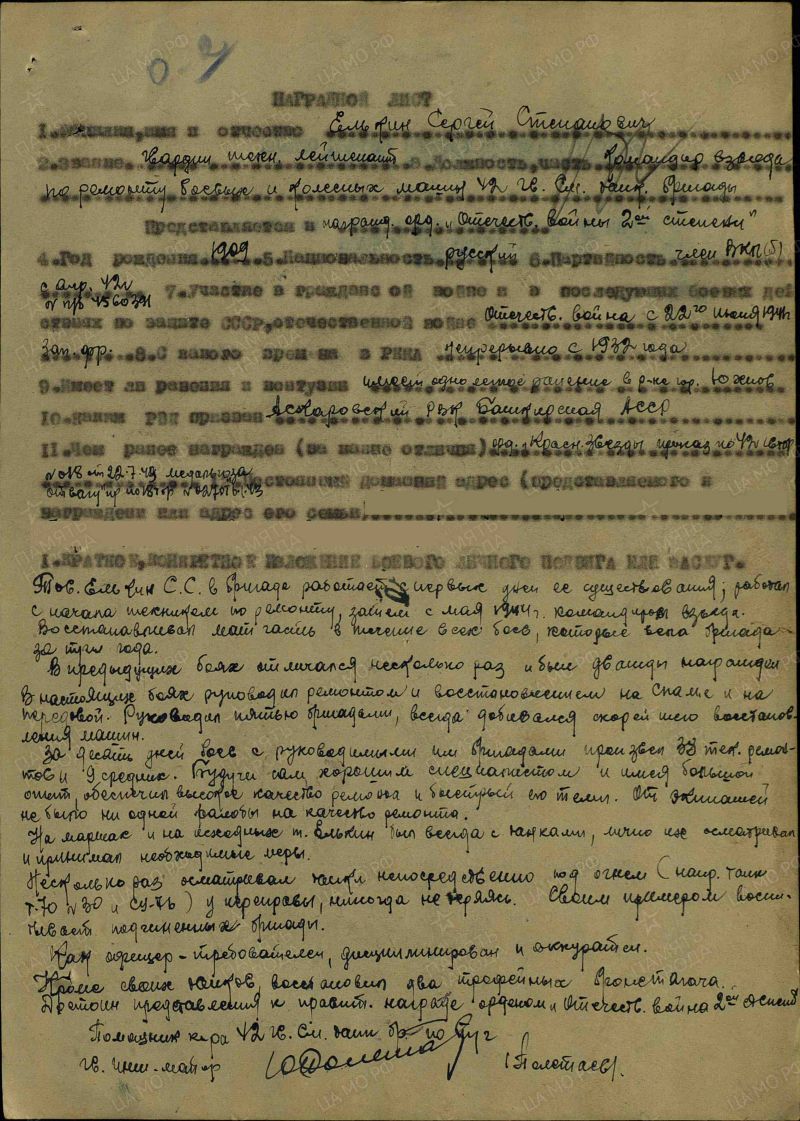 07
НАГРАДНОЙ ЛИСТ
1. Фамилия, имя и отчество Елькин Сергей Степанович
2. Звание. Гвардии техн. лейтенант 3. Должность, часть Командир взвода
по ремонту боевых и колесных машин 42 гв. См. танк. Бригады
Представляется к награжд. орд. "Отечеств. войны 2ой степени"
4. Год рождения. 1909 5. Национальность русский 6. Партийность член ВКП(б)
с апр. 42 г
7. Участие в гражданской войне и в последующих боевых дей
ствиях по защите СССР, отечественной войне Отечеств. война с 22го июня 1941г
Зап. фр. 8. С какого времени в РККА непрерывно с 1932 года
9. Имеет ли ранения и контузии имеет одно легкое ранение в р-не гор. Юхнов
10. Каким РВК призван Аскаровский РВК Башкирская АССР
11. Чем ранее награжден (за какие отличия) орд. "Красн. Звезды" приказ по 42
№ 018 от 22.7.43 медаль "за
отвагу" пр по
Постоянный домашний адрес (представляемого к
награждению или адрес его семьи
1. КРАТКОЕ, КОНКРЕТНОЕ ИЗЛОЖЕНИЕ БОЕВОГО ЛИЧНОГО ПОДВИГА ИЛИ ЗАСЛУГ.
Тов. Елькин С.С. в Бригаде работает с первых дней ее существования; работал
с начала техником по ремонту, затем с мая 1944 г. командиром взвода.
Восстанавливал мат часть в течение всех боев, которые вела бригада
за три года.
В предыдущих боях отличался несколько раз и был дважды награжден
В настоящих боях руководил ремонтом и восстановлением на Спаме и на
передовой. Руководил пятью бригадами, всегда добивался скорейшего восстанов-
ления машин.
За десять дней боев с руководимыми им бригадами произвел 33 тек. ремон-
тов и 9 средних. Будучи сам хорошим специалистом и имея большой
опыт, обеспечил высокое качество ремонта и быстрый его темп. От экипажей
не было ни одной жалобы на качество ремонта.
На маршах и на исходных т. Елькин был всегда с танками, лично их осматривал
и принимал необходимые меры.
Несколько раз осматривал танки непосредственно под огнем (напр. танк
Т-70 №30 и СУ-76) у переправы, никогда не теряясь. Своим примером воспи-
тывает подчиненных бригады.
Как офицер - требователен, дисциплинирован и аккуратен.
Кроме своих танков, восстановил два трофейных
Достоин представления к правит. награде орденом Отечеств. война 2ой степени
Помощник к-ра 42 гв. См. танк. бр. по
гв. инж-майор (Полетаев).